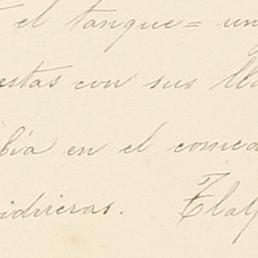 el tanque= un
estas con sus ll
bía en el comed
idrieras. Tlal